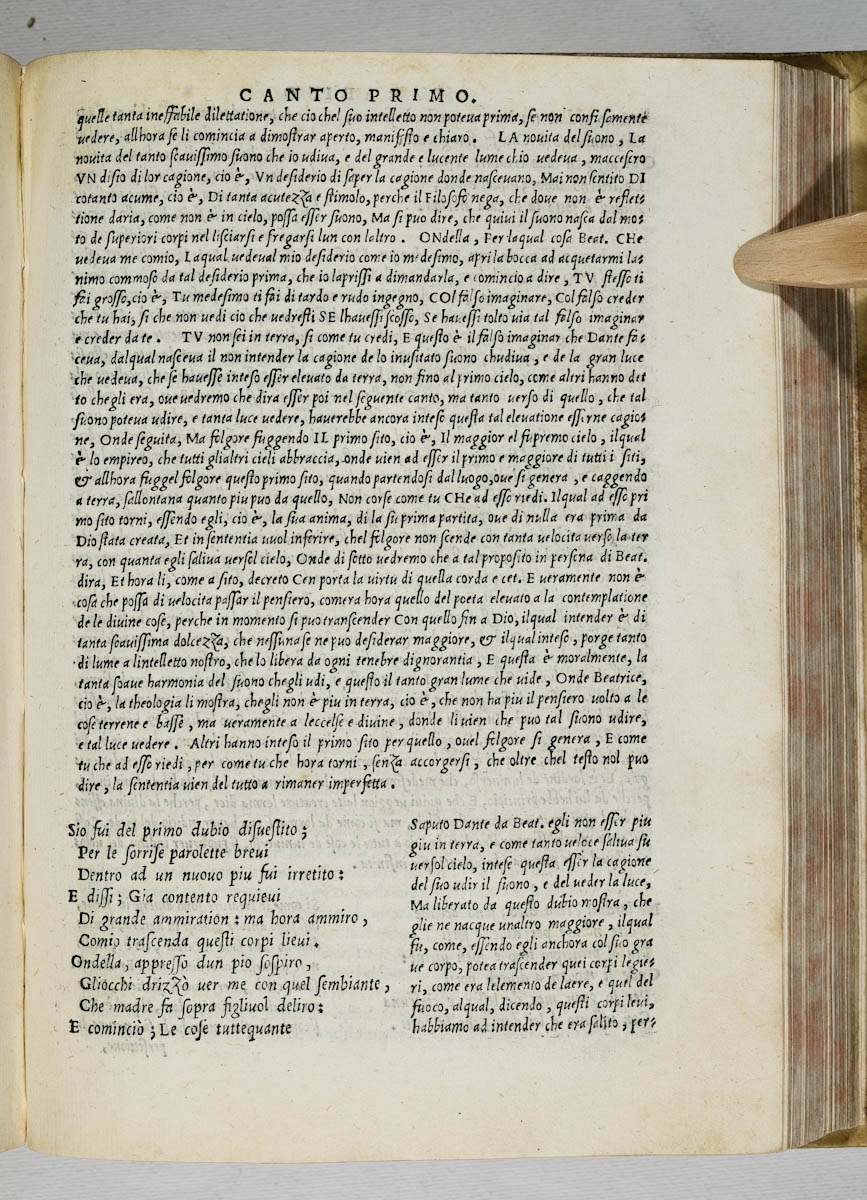 CANTO PRIMO.
quelle tanta ineffabile dilettatione, che cio chel suo intelletto non poteva prima, se non confusamente
vedere, allhora se li comincia a dimostrar aperto, manifesto e chiaro. LA novita del suono, La
novita del tanto soavissimo suono che io udiva, e del grande e lucente lume chio vedeva, maccesero
VN disio di lor cagione, cio è, Vn desiderio di saper la cagione donde nascevano, Mai non sentito DI
cotanto acume, cio è, Di tanta acutezza e stimolo, perche il Filosofo nega, che dove non è reflet=
tione daria, come non è in cielo, possa esser suono, Ma si puo dire, che quivi il suono nasca dal mo=
to de superiori corpi nel lisciarsi e fregarsi lun con laltro. ONdella, Per laqual cosa Beat. CHe
vedeva me com io, Laqual vedeva l mio desiderio come io medesimo, apri la bocca ad acquetarmi la=
nimo commosso da tal desiderio prima, che io laprissi a dimandarla, e comincio a dire, TV stesso ti
fai grosso, cio è, Tu medesimo ti fai di tardo e rudo ingegno, COl falso imaginare, Col falso creder
che tu hai, si che non vedi cio che vedresti SE lhavessi scosso, Se havessi tolto via tal falso imaginar
e creder da te. TV non sei in terra, si come tu credi, E questo è il falso imaginar che Dante fa=
ceva, dalqual nasceva il non intender la cagione de lo inusitato suono chudiva, e de la gran luce
che vedeva, che se havesse inteso esser elevato da terra, non fino al primo cielo, come altri hanno det
to chegli era, ove vedremo che dira esser poi nel seguente canto, ma tanto verso di quello, che tal
suono poteva udire, e tanta luce vedere, haverebbe ancora inteso questa tal elevatione esserne cagio=
ne, Onde seguita, Ma folgore fuggendo IL primo sito, cio è, Il maggior e l supremo cielo, ilqual
è lo empireo, che tutti glialtri cieli abbraccia, onde vien ad esser il primo e maggiore di tutti i siti,
& allhora fugge l folgore questo primo sito, quando partendosi dal luogo, ove si genera, e caggendo
a terra, sallontana quanto piu puo da quello, Non corse come tu CHe ad esso riedi. Ilqual ad esso pri
mo sito torni, essendo egli, cio è, la sua anima, di la su prima partita, ove di nulla era prima da
Dio stata creata, Et in sententia vuol inferire, chel folgore non scende con tanta velocita verso la ter
ra, con quanta egli saliva verso l cielo, Onde di sotto vedremo che a tal proposito in persona di Beat.
dira, Et hora li, come a sito, decreto Cen porta la virtu di quella corda e cet. E veramente non è
cosa che possa di velocita passar il pensiero, comera hora quello del poeta elevato a la contemplatione
de le divine cose, perche in momento si puo transcender Con quello fin a Dio, ilqual intender è di
tanta soavissima dolcezza, che nessuna se ne puo desiderar maggiore, & ilqual inteso, porge tanto
di lume a lintelletto nostro, che lo libera da ogni tenebre dignorantia, E questa è moralmente, la
tanta soave harmonia del suono chegli udi, e questo il tanto gran lume che vide, Onde Beatrice,
cio è, la theologia li mostra, chegli non è piu in terra, cio è, che non ha piu il pensiero volto a le
cose terrene e basse, ma veramente a leccelse e divine, donde li vien che puo tal suono udire,
e tal luce vedere. Altri hanno inteso il primo sito per quello, ove l folgore si genera, E come
tu che ad esso riedi, per come tu che hora torni, senza accorgersi, che oltre chel testo nol puo
dire, la sententia vien del tutto a rimaner imperfetta.
Sio fui del primo dubio disvestito;
Per le sorrise parolette brevi
Dentro ad un nuovo piu fui irretito:
E dissi; Gia contento requievi
Di grande ammiration: ma hora ammiro,
Comio trascenda questi corpi lievi.
Ondella, appresso dun pio sospiro,
Gliocchi drizzò ver me con quel sembiante,
Che madre fa sopra figlivol deliro:
E cominciò; Le cose tuttequante
Saputo Dante da Beat. egli non esser piu
giu in terra, e come tanto veloce saliva su
verso l cielo, intese questa esser la cagione
del suo udir il suono, e del veder la luce,
Ma liberato da questo dubio mostra, che
glie ne nacque unaltro maggiore, ilqual
fu, come, essendo egli anchora col suo gra
ve corpo, potea trascender quei corpi legie=
ri, come era lelemento de laere, e quel del
fuoco, alqual, dicendo, questi corpi levi,
habbiamo ad intender che era salito, per=